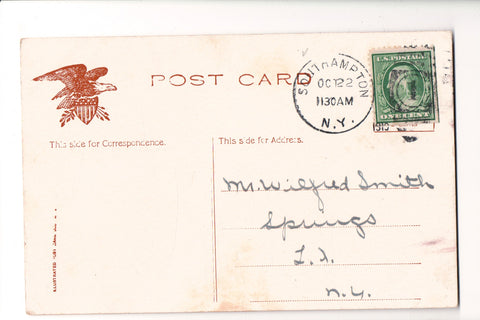 POST CARD
SOUTHAMPTON
OCT 22
1130AM
N.Y.
U.S. POSTAGE
ONE CENT
This side for Correspondence.
This side for Address.
Mr Wilfred Smith
Springs
L.I.
N.Y.
ILLUSTRATED POST